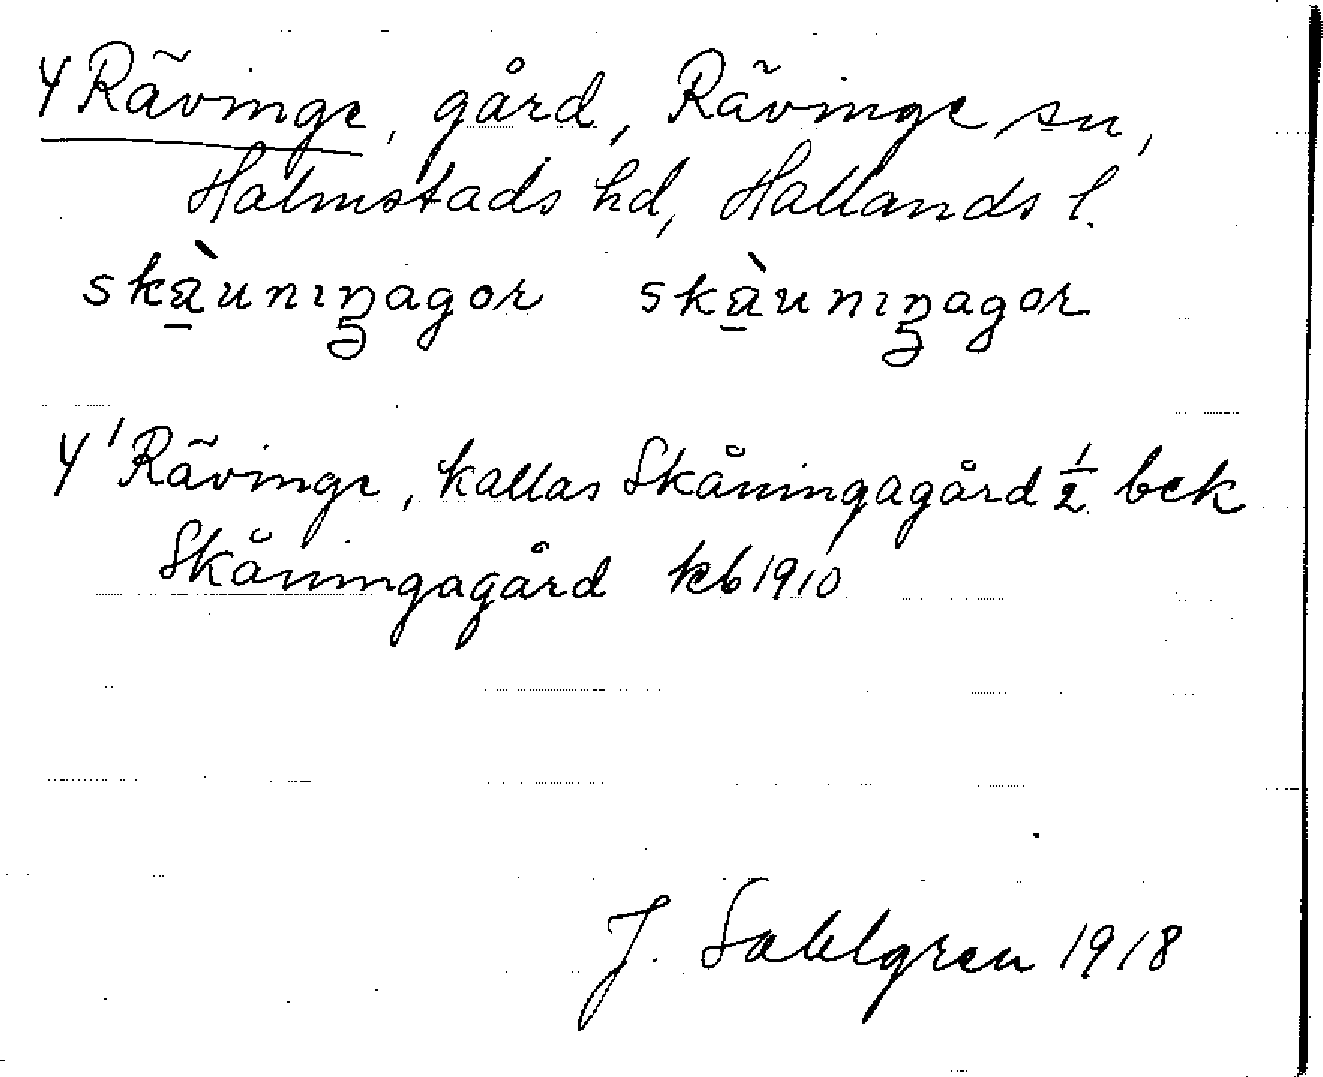 4 Rävinge, gård, Rävinge sn,
Halmstads hd, Hallands l.
skä̀uniŋagor skä̀uniŋagor
4¹ Rävinge, kallas Skåningagård ½ bek
Skåningagård kb 1910
J. Sahlgren 1918